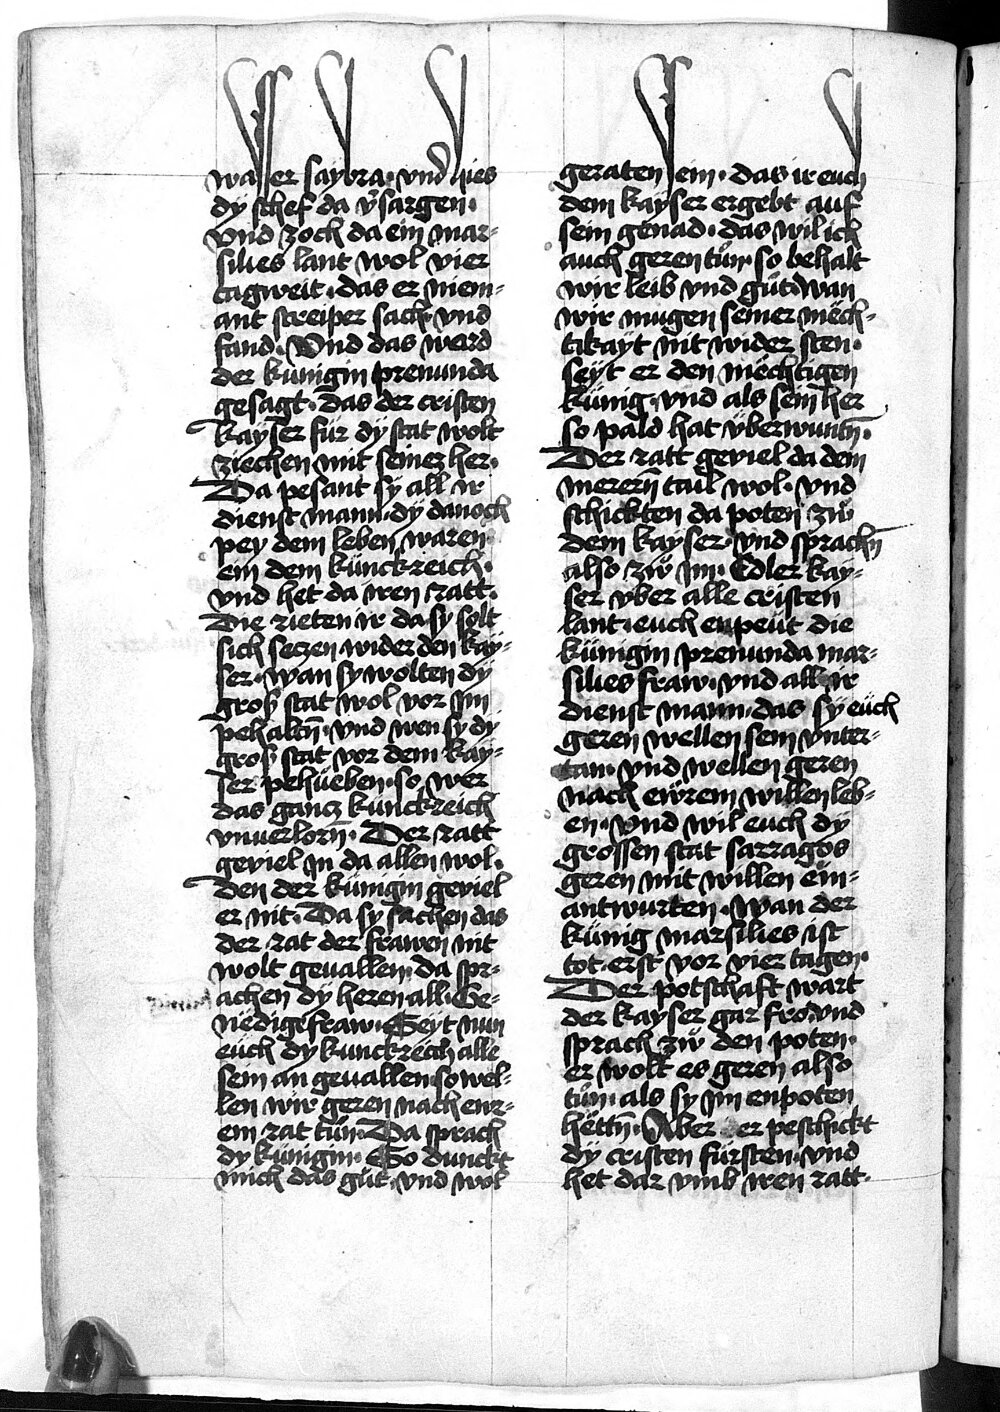 wasser saybra · vnd lies
dy schef da vͤsargen ·
vnd zoch da ein mar-
silies lant wol vier
tagweit · das er niem-
ant streiper sach · vnd
fand · Vnd das werd
der künigin prenunda
gesagt · das der cristen
kayser für dy stat wolt
ziechen mit seinez her ·
Da pesant sy all ir
dienst mann · dy danoch
pey dem leben waren ·
ein dem künckreich ·
vnd het da iren ratt ·
Die rieten ir da sy solt
sich seczen wider den kay-
ser · wan sy wolten dy
groß stat wol vor im
pehaltn̄ · vnd wen sy dy
groß stat vor dem kay-
ser pehüeben · so wer
das gancz künckreich
vnuerlorn̄ · Der ratt
geviel in da allen wol ·
den der künigin geviel
er nit · Da sy sachen das
der rat der frawen nit
wolt gevallen · da spr-
achen dy heren all · Ge-
nedige fraw · Seyt nun
euch dy künckreich alle
sein an gevallen · so wel-
len wir geren nach eur-
em rat tün · Da sprach
dy künigin · So dunckt
mich das güt · vnd wol
geraten sein · das ir euch
dem kayser ergebt auf
sein genad · das wil ich
auch geren tün · so behalt
wir leib vnd güt · wan
wir mugen seiner mëch-
tikayt nit wider sten ·
seyt er den mëchtigen
künig · vnd als sein her
so pald hat vberwuntn̄ ·
Der ratt geviel da dem
merern̄ tail wol · vnd
schickten da poten zü
dem kayser · vnd sprachn̄
also zü im · Edler kay-
ser vber alle cristen
lant · euch enpeüt die
künigin prenunda mar-
silies fraw · vnd all ir
dienst mann · das sy eüch
geren wellen sein vnter-
tan · vnd wellen geren
nach eürem willen leb-
en · vnd wil euch dy
grossen stat sarragos
geren mit willen ein-
antwurten · wan der
künig marsilies ist
tot · erst vor vier tagen ·
Der potschaft wart
der kayser gar fro · vnd
sprach zü den poten ·
er wolt es geren also
tün · als sy im enpoten
hëttn̄ · Aber er peschickt
dy cristen fürsten · vnd
het dar vmb iren ratt ·